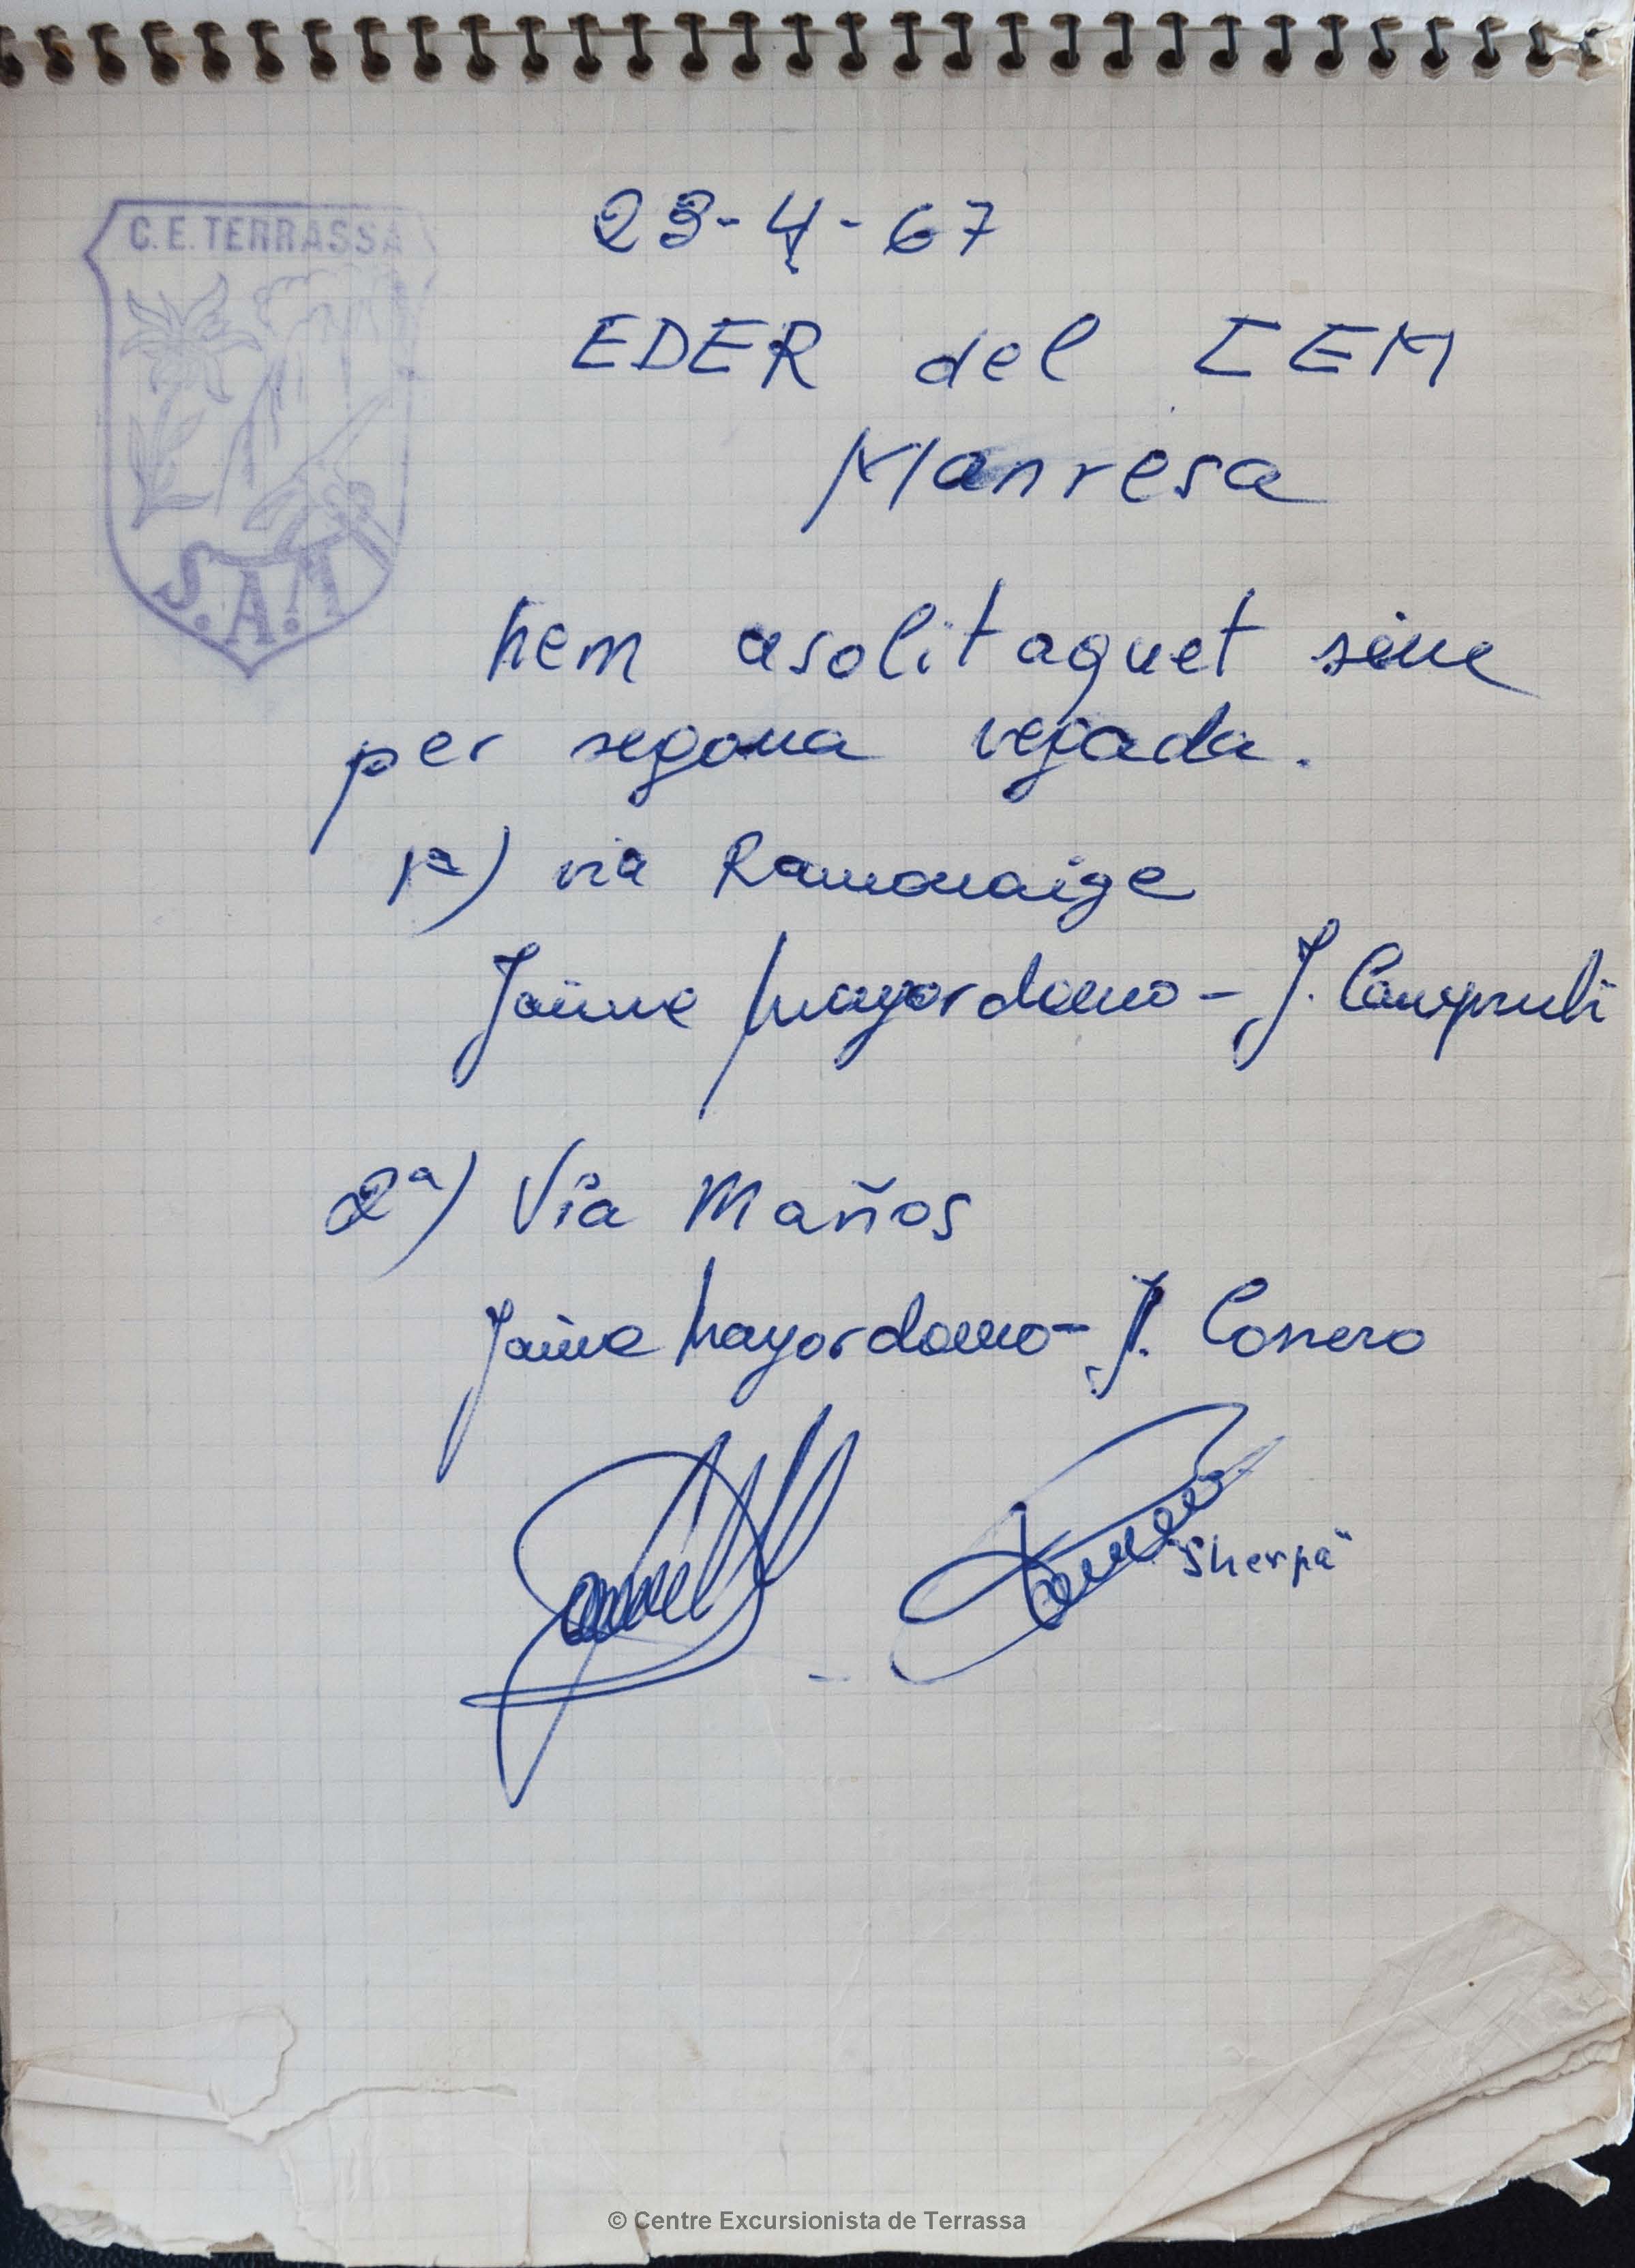 C.E. TERRASSA
S.A.M
23-4-67
EDER del CEM
Manresa
hem asolit aquet sime
per segona vegada.
1ª) via Ramonaige
Jaime Mayordomo - J. Camprubi
2ª) Via Maños
Jaime Mayordomo - J. Correro
"Sherpa"
© Centre Excursionista de Terrassa